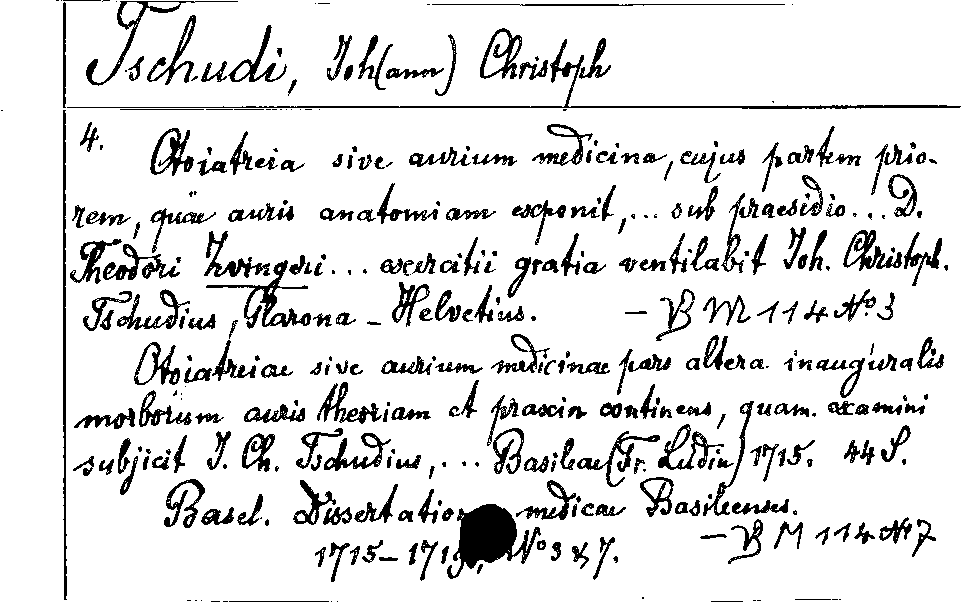 Tschudi, Joh(ann) Christoph
4.
Otoiatreia sive aurium medicina, cujus partem prio-
rem, quae auris anatomiam exponit, ... sub praesidio ... D.
Theodori Zvingeri ... exercitii gratia ventilabit Joh. Christoph.
Tschudius, Glarona-Helvetius. — B M 114 No 3
Otoiatreiae sive aurium medicinae pars altera inauguralis
morborum auris theoriam et praxin continens, quam examini
subjicit J. Ch. Tschudius, ... Basileae (Fr. Lüdin) 1715. 44 S.
Basel. Dissertation medicae Basileenses.
1715-1719, No 3 & 7. — B M 114 No 7